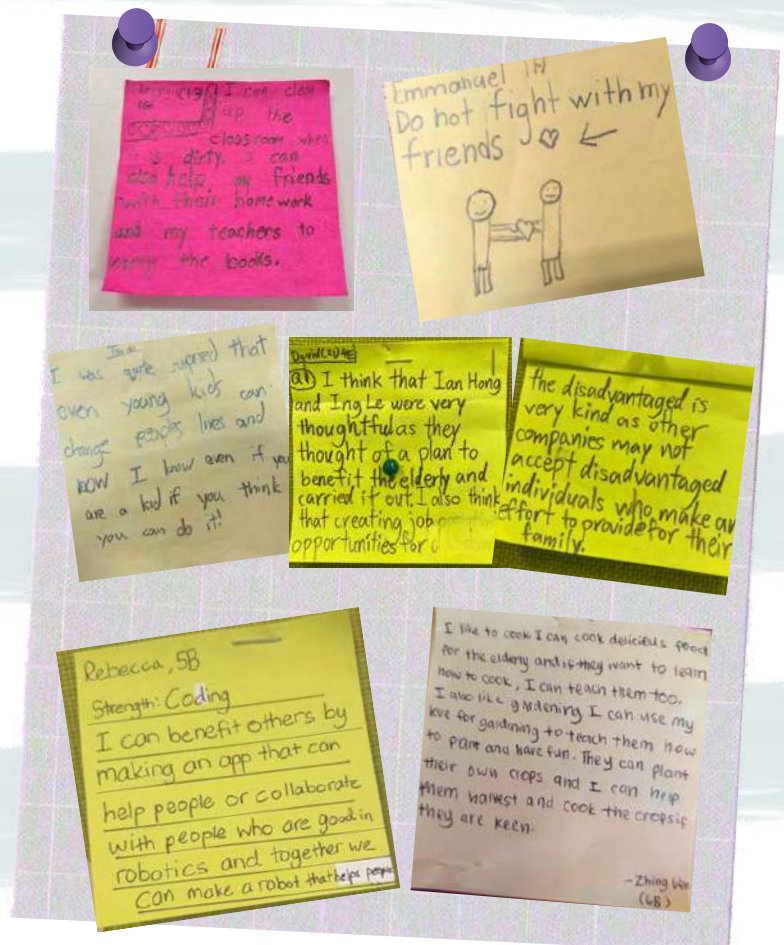 I can clean
up the
classroom when
is dirty. I can
also help my friends
with their homework
and my teachers to
the books.
Emmanuel
Do not fight with my
friends
I was quite supried that
even young kids can
change peoples lives and
now I know even if you
are a kid if you think
you can do it!
David (2) 4E
Q1 I think that Ian Hong
and Ing Le were very
thoughtful as they
thought of a plan to
benefit the elderly and
carried it out. I also think
that creating job
opportunities for
the disadvantaged is
very kind as other
companies may not
accept disadvantaged
individuals who make an
effort to provide for their
family.
Rebecca, 5B
Strength: Coding
I can benefit others by
making an app that can
help people or collaborate
with people who are good in
robotics and together we
can make a robot that helps people
I like to cook I can cook delicious food
for the elderly and if they want to learn
how to cook, I can teach them too.
I also like gardening I can use my
love for gardining to teach them how
to plant and have fun. They can plant
their own crops and I can help
them harvest and cook the crops if
they are keen.
-Zhing
(6B)